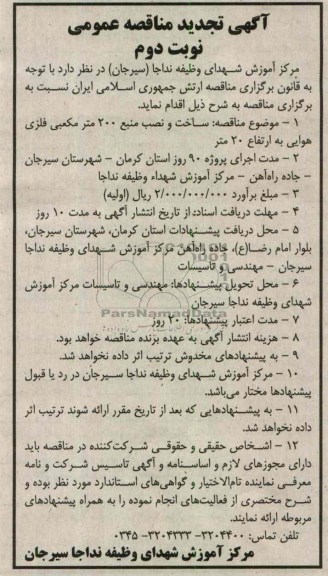 آگهی تجدید مناقصه عمومی
نوبت دوم
مرکز آموزش شهدای وظیفه نداجا (سیرجان) در نظر دارد با توجه
به قانون برگزاری مناقصه ارتش جمهوری اسلامی ایران نسبت به
برگزاری مناقصه به شرح ذیل اقدام نماید.
۱ - موضوع مناقصه: ساخت و نصب منبع ۲۰۰ متر مکعبی فلزی
هوایی به ارتفاع ۲۰ متر
۲ - مدت اجرای پروژه ۹۰ روز استان کرمان - شهرستان سیرجان
- جاده راه‌آهن - مرکز آموزش شهداء وظیفه نداجا
۳ - مبلغ برآورد ۲/۰۰۰/۰۰۰/۰۰۰ ریال (اولیه)
۴ - مهلت دریافت اسناد: از تاریخ انتشار آگهی به مدت ۱۰ روز
۵ - محل دریافت پیشنهادات استان کرمان، شهرستان سیرجان،
بلوار امام رضا(ع)، جاده راه‌آهن مرکز آموزش شهدای وظیفه نداجا
سیرجان - مهندسی و تاسیسات
۶ - محل تحویل پیشنهادها: مهندسی و تاسیسات مرکز آموزش
شهدای وظیفه نداجا سیرجان
۷ - مدت اعتبار پیشنهادها: ۲۰ روز
۸ - هزینه انتشار آگهی به عهده برنده مناقصه خواهد بود.
۹ - به پیشنهادهای مخدوش ترتیب اثر داده نخواهد شد.
۱۰ - مرکز آموزش شهدای وظیفه نداجا سیرجان در رد یا قبول
پیشنهادها مختار می‌باشد.
۱۱ - به پیشنهادهایی که بعد از تاریخ مقرر ارائه شوند ترتیب اثر
داده نخواهد شد.
۱۲ - اشخاص حقیقی و حقوقی شرکت‌کننده در مناقصه باید
دارای مجوزهای لازم و اساسنامه و آگهی تاسیس شرکت و نامه
معرفی نماینده تام‌الاختیار و گواهی‌های استاندارد مورد نظر بوده و
شرح مختصری از فعالیت‌های انجام نموده را به همراه پیشنهادهای
مربوطه ارائه نمایند.
تلفن تماس: ۳۲۰۴۴۰۰- ۳۲۰۴۳۳۳- ۰۳۴۵
مرکز آموزش شهدای وظیفه نداجا سیرجان
ParsNamadData